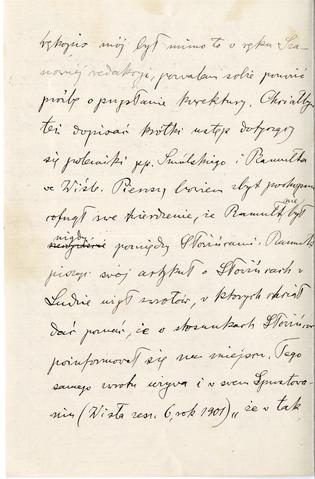 rękopis mój był mimo to w ręku Sza-
nownej redakcji, pozwalam sobie ponowić
prośbę o przysłanie korektury. Chciałbym
też dopisać krótki ustęp dotyczący
się polemiki pp. Smólskiego i Ramułta
w Wiśle. Pierwszy bowiem zbyt pochopnie
cofnął swe twierdzenie, że Ramułt nie był
nigdy pomiędzy Słowińcami. Ramułt
pisząc swój artykuł o Słowińcach w
Ludzie użył zwrotów, w których chciał
dać poznać, że o stosunkach Słowińców
poinformował się na miejscu. Tego
samego zwrotu używa i w swem Sprostowa-
niu (Wisła zesz. 6, rok 1901) „że w tak